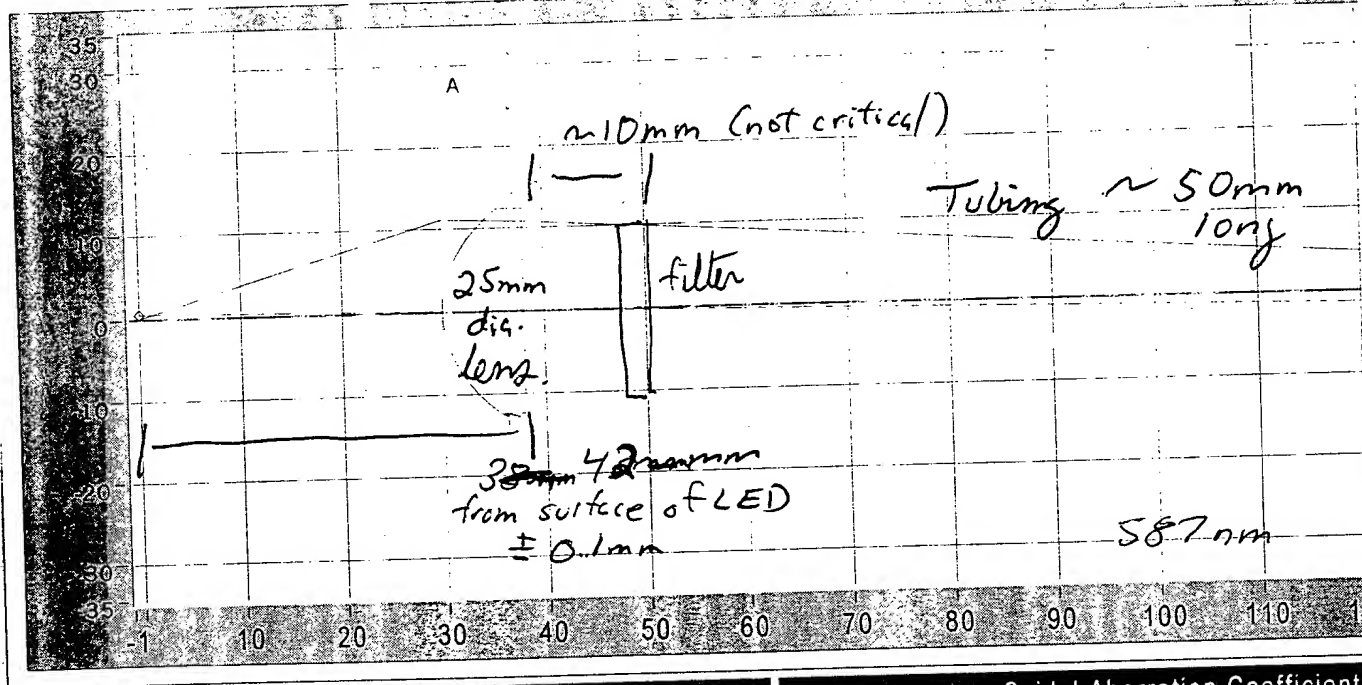 35
30
A
~10mm (not critical)
20
Tubing ~ 50mm
long
10
25mm
dia.
lens.
filter
0
-10
38mm 42mm
from surface of LED
± 0.1mm
-20
587nm
-30
-35
-1 10 20 30 40 50 60 70 80 90 100 110
Seidel Aberration Coefficient